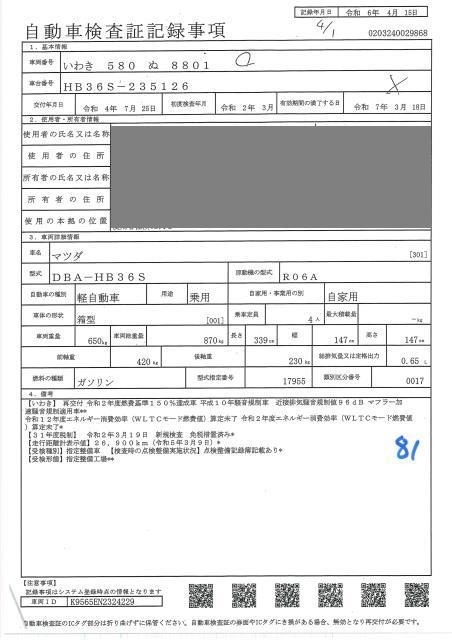 記録年月日 令和 6年 4月 15日
4/1
自動車検査証記録事項
0203240029868
1. 基本情報
車両番号 いわき 580 ぬ 8801
車台番号 HB36S-235126
交付年月日 令和 4年 7月 25日 初度検査年月 令和 2年 3月 有効期間の満了する日 令和 7年 3月 18日
2. 使用者・所有者情報
使用者の氏名又は名称
使用者の住所
所有者の氏名又は名称
所有者の住所
使用の本拠の位置
3. 車両詳細情報
車名 マツダ [301]
型式 DBA-HB36S 原動機の型式 R06A
自動車の種別 軽自動車 用途 乗用 自家用・事業用の別 自家用
車体の形状 箱型 [001] 乗車定員 4人 最大積載量 -kg
車両重量 650kg 車両総重量 870kg 長さ 339cm 幅 147cm 高さ 147cm
前軸重 420kg 後軸重 230kg 総排気量又は定格出力 0.65 L
燃料の種類 ガソリン 型式指定番号 17955 類別区分番号 0017
4. 備考
【いわき】 再交付 令和2年度燃費基準150%達成車 平成10年騒音規制車 近接排気騒音規制値96dB マフラー加
速騒音規制適用車**
令和12年度エネルギー消費効率(WLTCモード燃費値)算定未了 令和2年度エネルギー消費効率(WLTCモード燃費値
)算定未了*
【31年度税制】 令和2年3月19日 新規検査 免税措置済み*
【走行距離計表示値】26,900km(令和5年3月9日)*
【受検種別】指定整備車 【検査時の点検整備実施状況】点検整備記録簿記載あり*
【受検形態】指定整備工場**
81
【注意事項】
記録事項はシステム登録時点の情報となります
車両ID K9565EN2324229
自動車検査証のICタグ部分は折り曲げずに保管ください。自動車検査証の券面やICタグにき損がある場合、無効となり再交付が必要です。